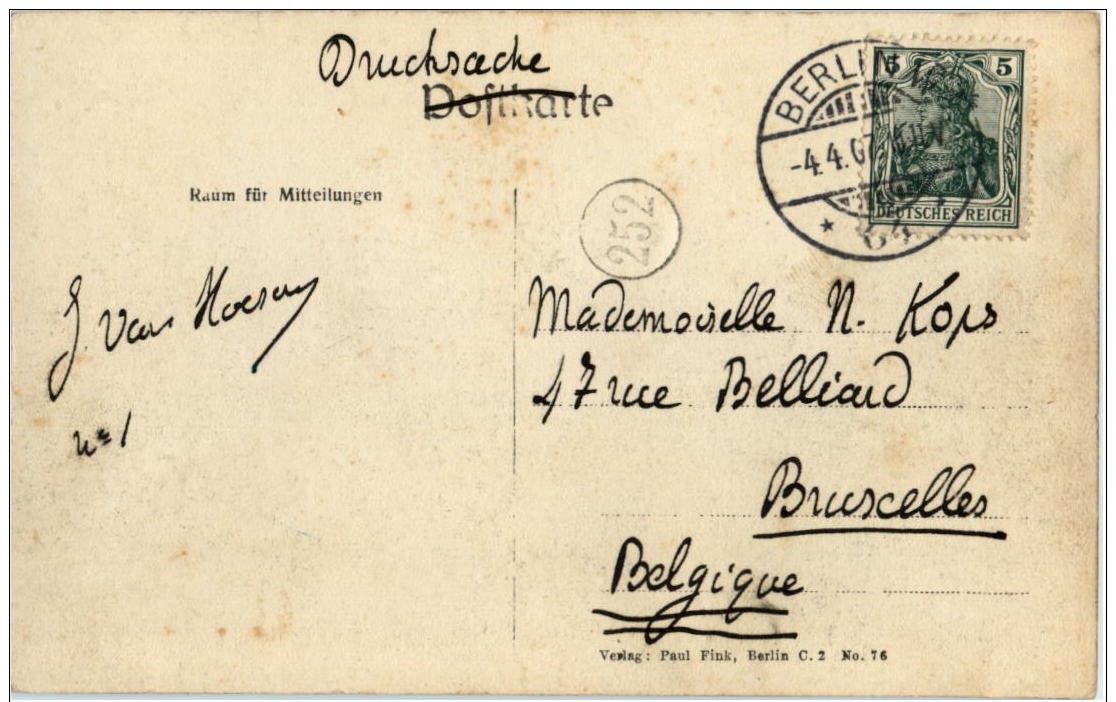 Drucksache
Postkarte
BERLIN
5 5
-4.4.07
DEUTSCHES REICH
Raum für Mitteilungen
252
J. Van
Mademoiselle N. Kops
47 rue Belliard
nº 1
Bruxcelles
Belgique
Verlag: Paul Fink, Berlin C. 2 No. 76